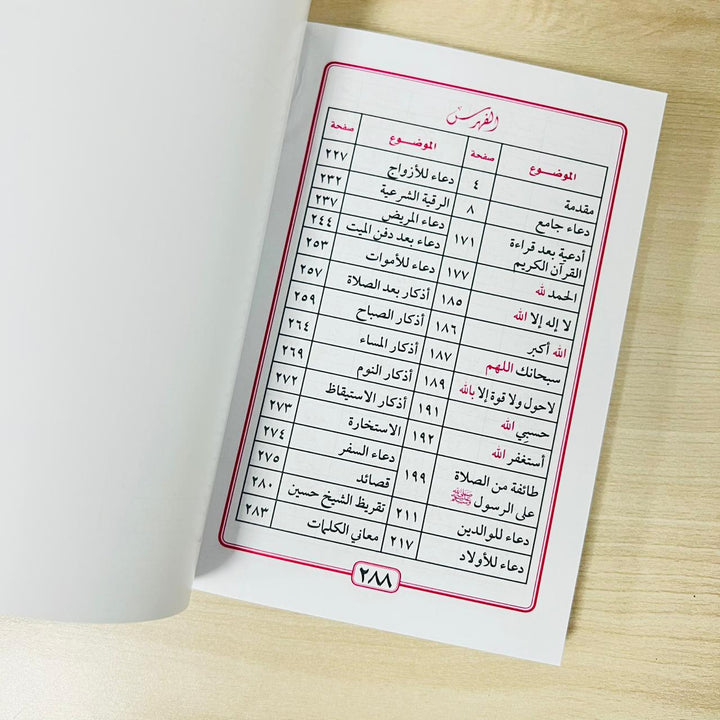 الفهرس
الموضوع صفحة
مقدمة ٤
دعاء جامع ٨
أدعية بعد قراءة
القرآن الكريم ١٧١
الحمد لله ١٧٧
لا إله إلا الله ١٨٥
الله أكبر ١٨٦
سبحانك اللهم ١٨٧
لا حول ولا قوة إلا بالله ١٨٩
حسبي الله ١٩١
أستغفر الله ١٩٢
طائفة من الصلاة
على الرسول ﷺ ١٩٩
دعاء للوالدين ٢١١
دعاء للأولاد ٢١٧
الموضوع صفحة
دعاء للأزواج ٢٢٧
الرقية الشرعية ٢٣٢
دعاء المريض ٢٣٧
دعاء بعد دفن الميت ٢٤٤
دعاء للأموات ٢٥٣
أذكار بعد الصلاة ٢٥٧
أذكار الصباح ٢٥٩
أذكار المساء ٢٦٤
أذكار النوم ٢٦٩
أذكار الاستيقاظ ٢٧٢
الاستخارة ٢٧٣
دعاء السفر ٢٧٤
قصائد ٢٧٥
تقريظ الشيخ حسين ٢٨٠
معاني الكلمات ٢٨٣
٢٨٨